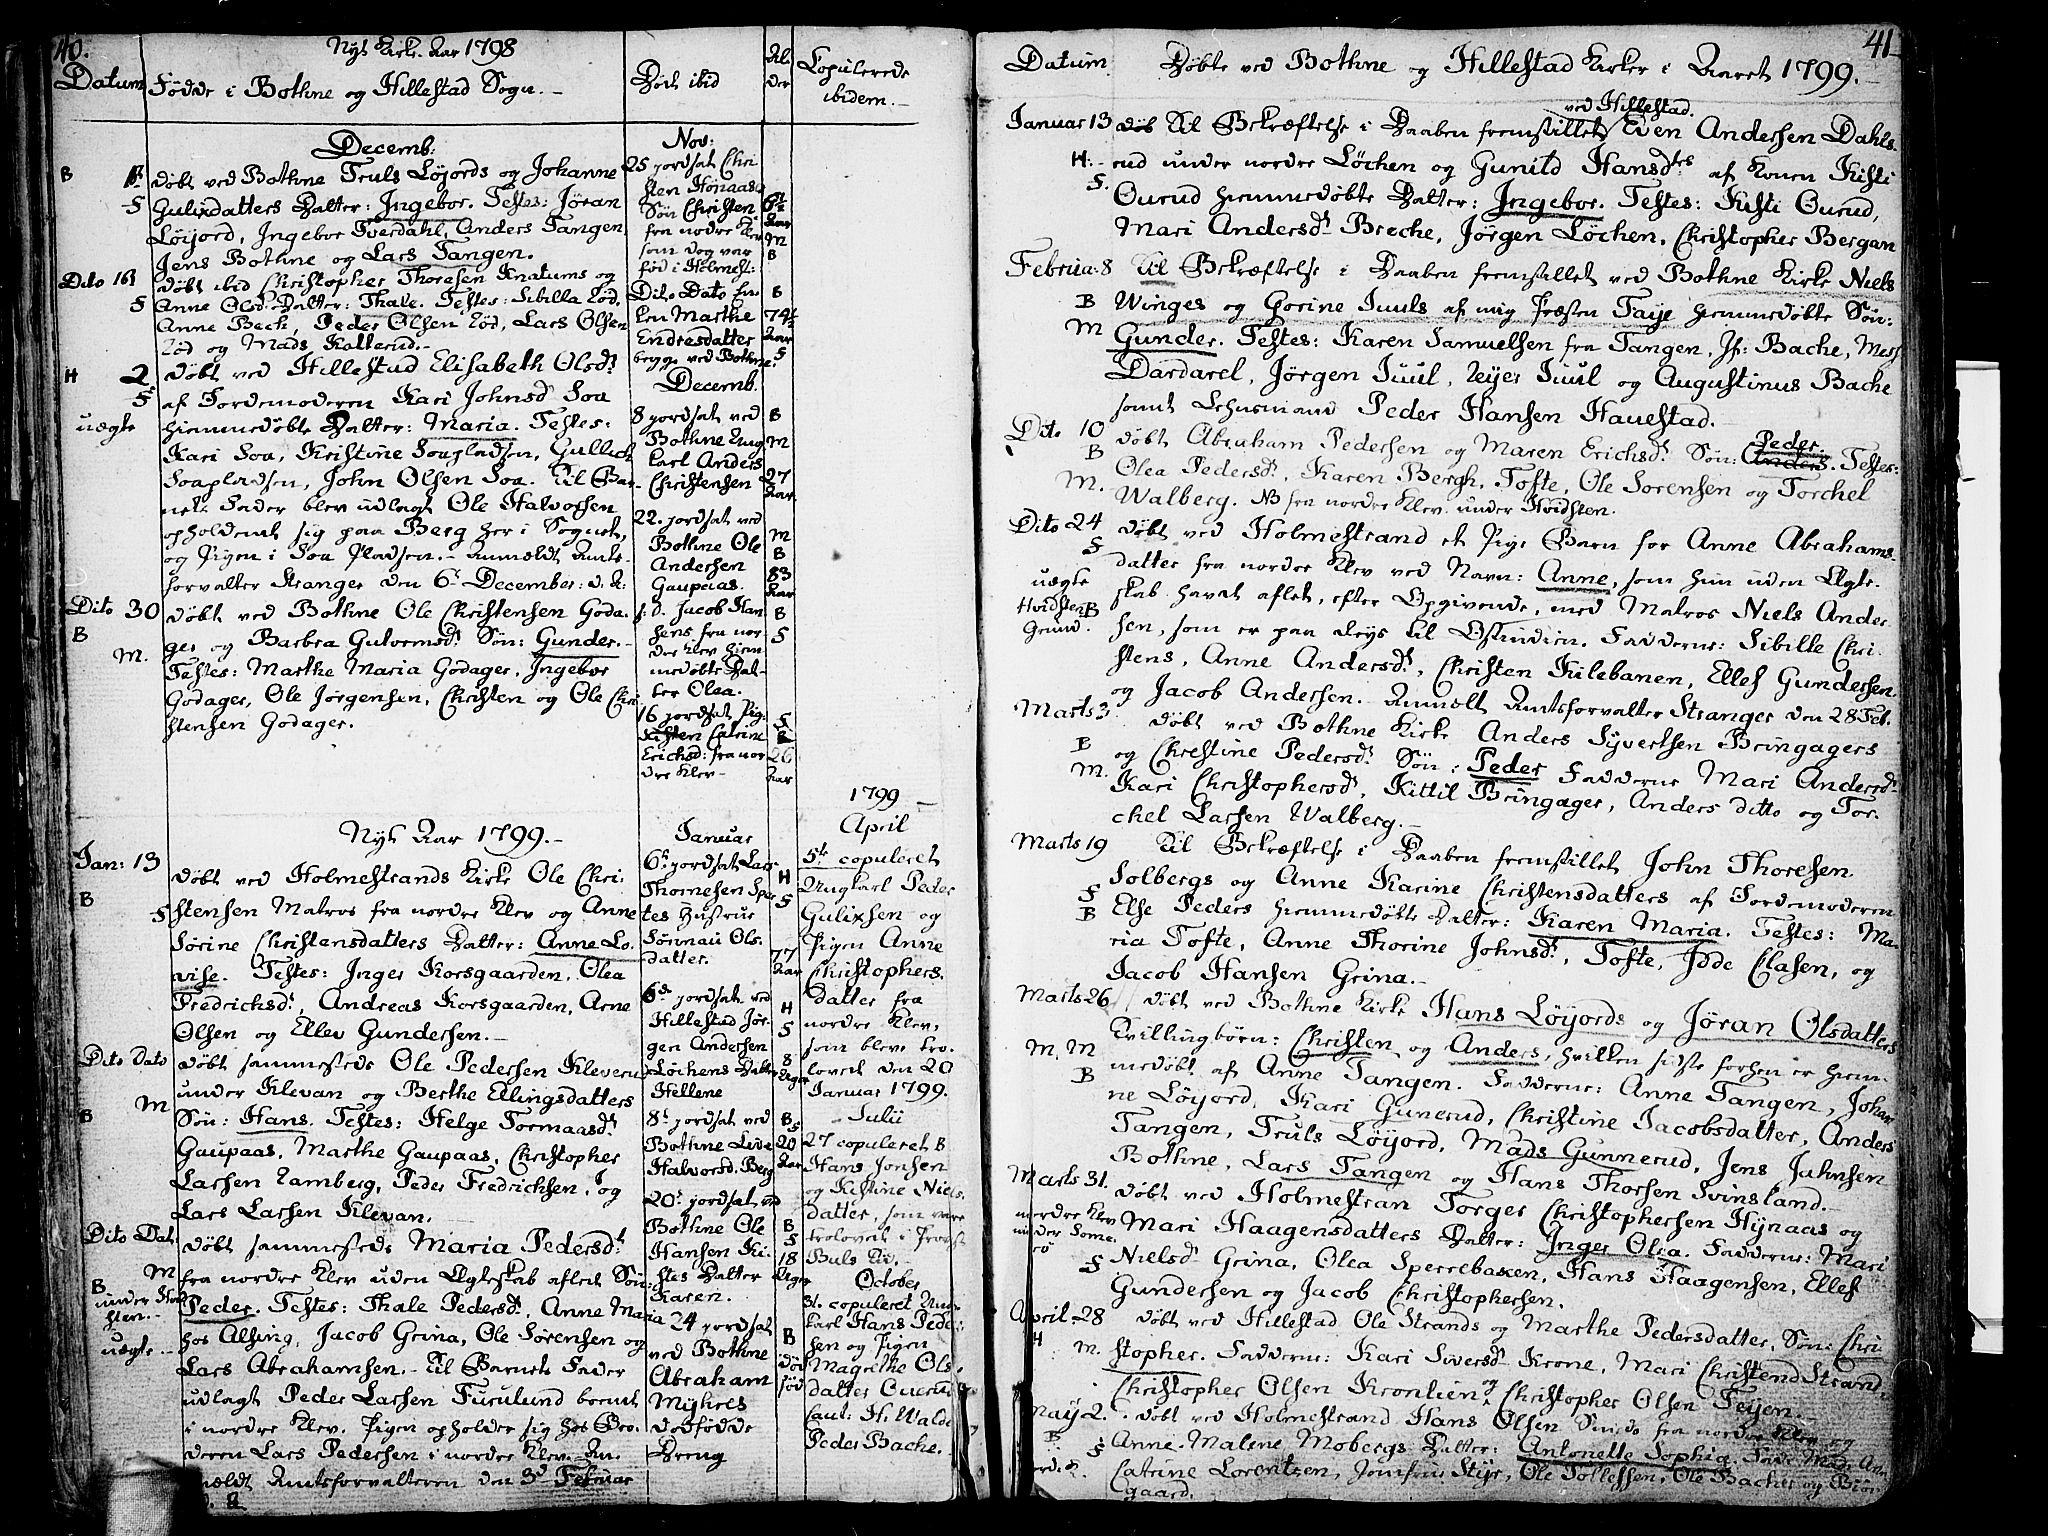 40.
Nyt Kirke Aar 1798
Datum
Fødde i Bothne og Hillestad Sogn.-
Døde ibid
Al
der
Copulerede
ibidem.-
Decemb:
B
døbt ved Bothne Truls Löjords og Johanne
F
Gulixdatters Datter: Ingebor. Testes: Jöran
Löijord, Ingebor Tverdahl, Anders Tangen
Jens Bothne og Lars Tangen.
Dito 16
døbt ibid Christopher Thoresen Knatums og
F
Anne Olsd. Datter: Thale. Testes: Sibilla Löd,
Anne Bech, Peder Olsen Löd, Lars Olsen
Löd og Mads Kallerud.-
H 2
døbt ved Hillestad Elisabeth Olsd.
F
af Jordemoderen Kari Johnsd Soa
uægte
hiemmedøbte Datter: Maria. Testes:
Kari Soa, Kristine Soapladsen, Gullich
Soapladsen, John Olsen Soa. Til Bar-
nets Fader blev udlagt Ole Halvorsen
opholdende sig paa Berg her i Sognet,
og Pigen i Soa Pladsen.- Anmeldt Amts-
forvalter Stranger den 6te December: d. A:
Dito 30
døbt ved Bothne Ole Christensen Goda-
B
M.
ger og Barbra Gutormsd. Søn: Gunder.-
Testes: Marthe Maria Godager, Ingebor
Godager, Ole Jørgensen, Christen og Ole Chri
stensen Godager.
Nov:
25 jordsat Chri
sten Hönaas
Søn Christen
fra nordre Klev
som dog var
fød i Holmest:
6½
Aar
M
B
Dito Dato En-
ken Marthe
Endresdatter
begge ved Bothne.
B
74½
Aar
F
Decemb.
8 jordsat ved
Bothne Ung
karl Anders
Christensen
B
M
27
Aar
22. jordsat ved
Bothne Ole
Andersen
Gaupaas.
M
B
83
Aar
s. d. Jacob Han
sens fra nor
dre Klev hiem
medøbte Dat-
ter Olea.
B
F
16 jordsat Pig.
Kisten Catrine
Ericksd: fra nor
dre Klev-
F
B
26
Aar
Nyt Aar 1799.-
Jan: 13
døbt ved Holmestrands Kirke Ole Chri-
B
F
stensen Matros fra nordre Klev og Anne
Sörine Christensdatters Datter: Anne Lo-
vise. Testes: Inger Korsgaarden, Olea
Fredrichsd., Andreas Korsgaarden, Arne
Olsen og Ellev Gundersen.-
Dito Dato
døbt sammesteds Ole Pedersen Kleverud
under Klevan og Berthe Ellingsdatters
B M
Søn: Hans. Testes: Helge Tormaasd.
Gaupaas, Marthe Gaupaas, Christopher
Larsen Ramberg, Peder Fredrichsen, og
Lars Larsen Klevan.
Dito Dat.
døbt sammesteds Maria Pedersd.
B M
fra nordre Klev uden Ægteskab aflede Søn:
under Hvid
sten.-
Peder. Testes: Thale Pedersd., Anne Maria
uægte
hos Alsing, Jacob Grina, Ole Sörensen og
Lars Abrahamsen.- Til Barnets Fader
udlagt Peder Larsen Furulund boende
i nordre Klev. Pigen opholder sig hos Bro-
deren Lars Pedersen i nordre Klev. An-
meldt Amtsforvalteren den 3d Februar
Januar
6te jordsat Lars
Thomesen Sper
tes Hustrue
Sönnau Ols-
datter.
H
F
77
Aar
6te jordsat ved
Hillestad Jør-
gen Andersen
Löchens Datter
Hellene
H
F
8
Uger
8te jordsat ved
Bothne Live
Halvorsd. Berg
B
F
20
Aar
20te jordsat ved
Bothne Ole
Hansen Ki-
stes Datter
Karen.
B
F
18
Uger
24 jordsat
ved Bothne
Abraham
Myhres
dødfødde
Dreng
B
død
fød
1799
April
5te copuleret
Ungkarl Peder
Gulixsen og
Pigen Anne
Christophers-
datter fra
nordre Klev,
som bleve tro-
lovede den 20
Januar 1799.
Julii
27 copuleret B
Hans Jonsen
og Kistine Niels-
datter, som vare
trolovede i Provst
Buls tid.
October
31. copuleret Ung-
karl Hans Peder-
sen og Pigen
Magrethe Ols-
datter Ourud
Caut: H. Walde
Peder Bache.
41
Datum
Døbte ved Bothne og Hillestad Kirker i Aaret 1799.-
Januar 13
ved Hillestad
døb Til Bekræftelse i Daaben fremstillet Even Andersen Dahls-
H:-
rud under nordre Löchen og Gunild Hansdtes af Konen Kisti
F
Ourud hiemmedøbte Datter: Ingebor. Testes: Kisti Ourud,
Mari Andersd. Breche, Jørgen Löchen, Christopher Bergan
Februa: 8
Til Bekræftelse i Daaben fremstillet ved Bothne Kirke Niels
B
Winges og Gorine Juuls af mig Præsten Taye hiemmedøbte Søn:
M
Gunder. Testes: Karen Samuelsen fra Tangen, Jf: Bache, Mess.
Dardarel, Jörgen Juul, Reyer Juul og Augustinus Bache
samt Lehnsmand Peder Hansen Hauestad.
Dito 10
Peder
døbt Abraham Pedersen og Maren Erichsd. Søn: Anders. Testes:
B
Olea Pedersd., Karen Bergh, Tofte, Ole Sorensen og Torchel
M.
Walberg. NB fra nordre Klev under Hvidsten.
Dito 24
døbt ved Holmestrand et Pige Barn for Anne Abrahams-
F
datter fra nordre Klev ved Navn: Anne, som hun uden Ægte-
uægte
skab havde aflet, efter Opgivende, med Matros Niels Ander-
Hvidsten B
Grund.
sen, som er paa Reys til Ostindien. Fadderne: Sibille Chri-
stens, Anne Andersd., Christen Kilebanen, Ellef Gundersen
og Jacob Andersen. Anmelt Amtsforvalter Stranger den 28 Feb.
Marts 3
døbt ved Bothne Kirke Anders Syvertsen Bringagers
B
og Christine Pedersd. Søn: Peder Fadderne Mari Andersd.
M.
Kari Christophersd., Kittil Bringager, Anders ditto og Tor-
chel Larsen Walberg.-
Marts 19
Til Bekræftelse i Daaben fremstillet John Thoresen
Solbergs og Anne Karine Christensdatters af Jordemoderen
F
B
Else Peders hiemmedøbte Datter: Karen Maria. Testes: Ma-
ria Tofte, Anne Thorine Johnsd., Tofte, Idde Clasen, og
Jacob Hansen Grina.-
Marts 26
døbt ved Bothne Kirke Hans Löyords og Jöran Olsdatters
M. M
Tvillingbørn: Christen og Anders, hvilken sidste forhen er hiem-
B
medøbt af Anne Tangen. Fadderne: Anne Tangen, Johan
ne Löyord, Kari Gunerud, Christine Jacobsdatter, Anders
Tangen, Truls Löyord, Mads Gunnerud, Jens Jahnsen
Bothne, Lars Tangen og Hans Thorsen Svinsland.
Marts 31.
døbt ved Holmestran Torger Christophersen Hynaas og
nordre Klev
under Some
rö
Mari Haagensdatters Datter: Inger Olea. Fadderne: Mari
F
Nielsd. Grina, Olea Sperrebaken, Hans Haagensen, Ellef
Gundersen og Jacob Christophersen.
April 28
døbt ved Hillestad Ole Strands og Marthe Pedersdatter, Søn: Chri
H M.
stopher. Fadderne: Kari Siversd. Krone, Mari Christensd Strand,
Christopher Olsen Kronlien og Christopher Olsen Teijen.
May 2.
døbt ved Holmestrand Hans Olsen Smeds fra nordre Klev og
B
F
Anne Malene Mobergs Datter: Antonette Sophia. Fadd: Mad: Ann
Catrine Lorentzen, Jomfrue Styr, Ole Tollefsen, Ole Bacher og Biør
gaard.